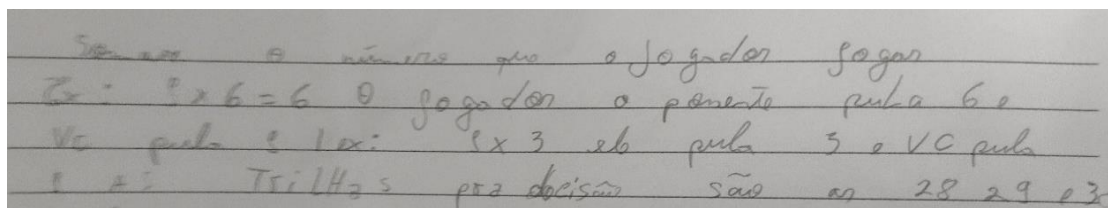 Somar o número que o Jogador Jogar
Ex: 1x6=6 O Jogador o ponente pula 6 e
VC pula 1 ex: 1x3 ele pula 3 e VC pula
1 TriLHas pra decisão são as 28 29 e 3